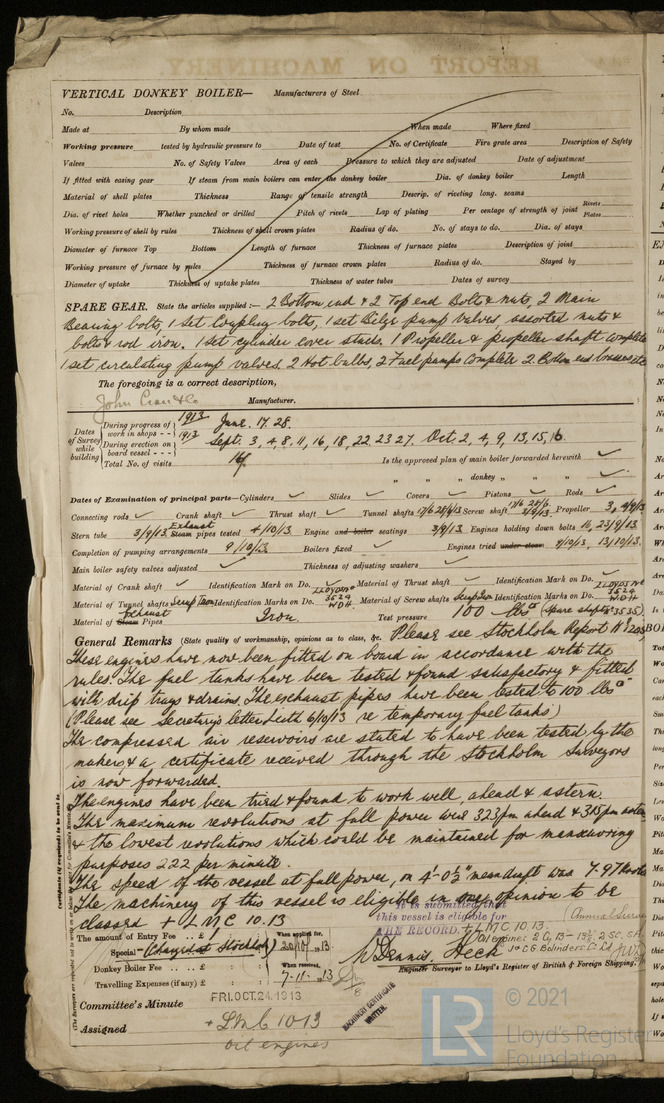 VERTICAL DONKEY BOILER— Manufacturers of Steel
No. Description
Made at By whom made When made Where fixed
Working pressure tested by hydraulic pressure to Date of test No. of Certificate Fire grate area Description of Safety
Valves No. of Safety Valves Area of each Pressure to which they are adjusted Date of adjustment
If fitted with easing gear If steam from main boilers can enter the donkey boiler Dia. of donkey boiler Length
Material of shell plates Thickness Range of tensile strength Descrip. of riveting long. seams
Dia. of rivet holes Whether punched or drilled Pitch of rivets Lap of plating Per centage of strength of joint Rivets Plates
Working pressure of shell by rules Thickness of shell crown plates Radius of do. No. of stays to do. Dia. of stays
Diameter of furnace Top Bottom Length of furnace Thickness of furnace plates Description of joint
Working pressure of furnace by rules Thickness of furnace crown plates Radius of do. Stayed by
Diameter of uptake Thickness of uptake plates Thickness of water tubes Dates of survey
SPARE GEAR. State the articles supplied :— 2 Bottom end & 2 Top end Bolts & nuts, 2 Main
Bearing bolts, 1 set Coupling bolts, 1 set Bilge pump valves, assorted nuts &
bolts & rod iron. 1 set cylinder cover studs. 1 Propeller & propeller shaft complete
1 set circulating pump valves. 2 Hot bulbs, 2 Fuel pumps Complete 2 Bottom end brasses etc
The foregoing is a correct description,
John Cran & Co Manufacturer.
Dates of Survey while building
During progress of work in shops - - 1913 June. 17. 28.
During erection on board vessel - - - 1913 Sept. 3, 4, 8, 11, 16, 18, 22, 23 27. Oct. 2, 4, 9, 13, 15, 16
Total No. of visits Is the approved plan of main boiler forwarded herewith ✓
" " " donkey " " " ✓
Dates of Examination of principal parts—Cylinders ✓ Slides ✓ Covers ✓ Pistons ✓ Rods ✓
Connecting rods ✓ Crank shaft ✓ Thrust shaft ✓ Tunnel shafts Screw shaft Propeller
Stern tube 3/9/13 Exhaust Steam pipes tested 4/10/13 Engine and boiler seatings 3/9/13 Engines holding down bolts 16, 23/9/13
Completion of pumping arrangements 9/10/13 Boilers fixed ✓ Engines tried under steam 9/10/13, 13/10/13.
Main boiler safety valves adjusted ✓ Thickness of adjusting washers ✓
Material of Crank shaft ✓ Identification Mark on Do. ✓ Material of Thrust shaft ✓ Identification Mark on Do. ✓
Material of Tunnel shafts Scrap Iron Identification Marks on Do. LLOYDS No 3524 WDH Material of Screw shafts Scrap Iron Identification Marks on Do. LLOYDS No 3524 W.D.H
Material of Exhaust Steam Pipes Iron. Test pressure 100 lbs □" (Spare shaft No 3535)
General Remarks (State quality of workmanship, opinions as to class, &c. Please see Stockholm Report No
These engines have now been fitted on board in accordance with the
rules. The fuel tanks have been tested & found satisfactory & fitted
with drip trays & drains. The exhaust pipes have been tested to 100 lbs □"
(Please see Secretary's letter Leith 6/10/13 re temporary fuel tanks)
The compressed air reservoirs are stated to have been tested by the
makers & a certificate received through the Stockholm Surveyors
is now forwarded
The engines have been tried & found to work well, ahead & astern.
The maximum revolutions at full power were 323 pm ahead & 315 pm astern
& the lowest revolutions which could be maintained for manœuvring
purposes 222 per minute.
The speed of the vessel at full power, on 4'-0½" mean draft was 7.97 knots
The machinery of this vessel is eligible in my opinion to be
classed + LMC 10.13
It is submitted that
this vessel is eligible for
THE RECORD. + LMC 10.13
Oil engines 2 Cy.
The amount of Entry Fee . . £ : : When applied for,
Special - Charged at Stockholm 20/10/13
Donkey Boiler Fee . . . £ : : When received,
Travelling Expenses (if any) £ : : 7-11-13
W Dennis. Heck
Engineer Surveyor to Lloyd's Register of British & Foreign Shipping.
Committee's Minute FRI. OCT. 24. 1913
Assigned + LMC 10.13
oil engines
MACHINERY CERTIFICATE WRITTEN.
© 2021
LR
Lloyd's Register
Foundation